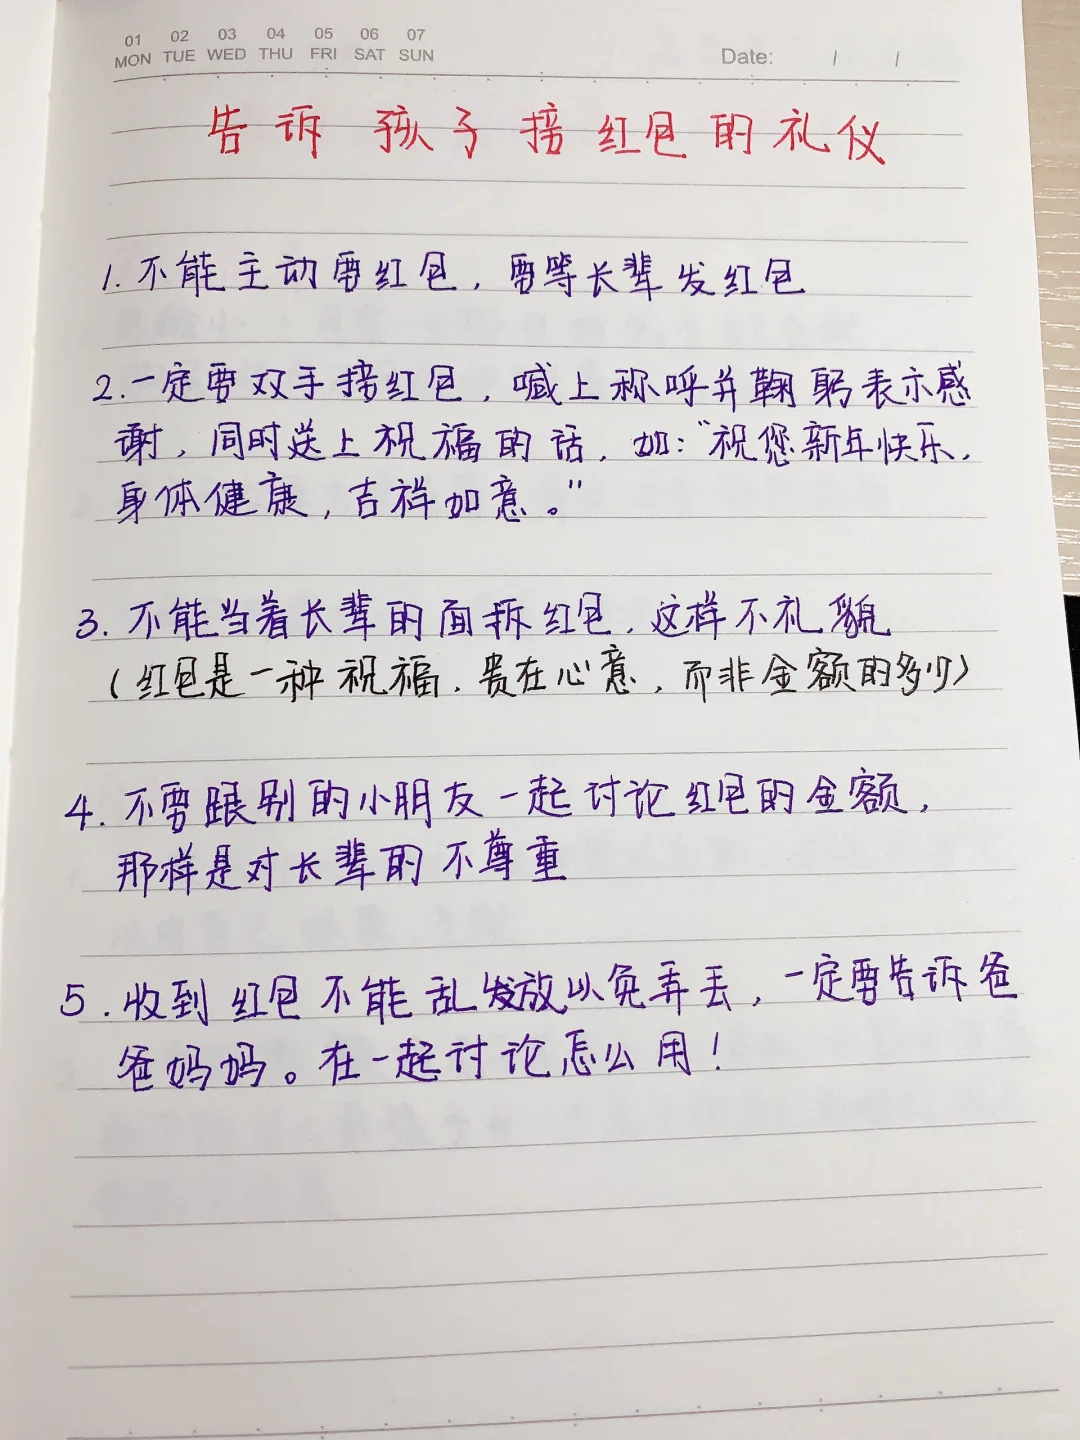 01 02 03 04 05 06 07
MON TUE WED THU FRI SAT SUN
Date: / /
告诉孩子接红包的礼仪
1.不能主动要红包，要等长辈发红包
2.一定要双手接红包，喊上称呼并鞠躬表示感
谢，同时送上祝福的话，如：“祝您新年快乐，
身体健康，吉祥如意。”
3.不能当着长辈的面拆红包，这样不礼貌
（红包是一种祝福，贵在心意，而非金额的多少）
4.不要跟别的小朋友一起讨论红包的金额，
那样是对长辈的不尊重
5.收到红包不能乱发放以免弄丢，一定要告诉爸
爸妈妈。在一起讨论怎么用！